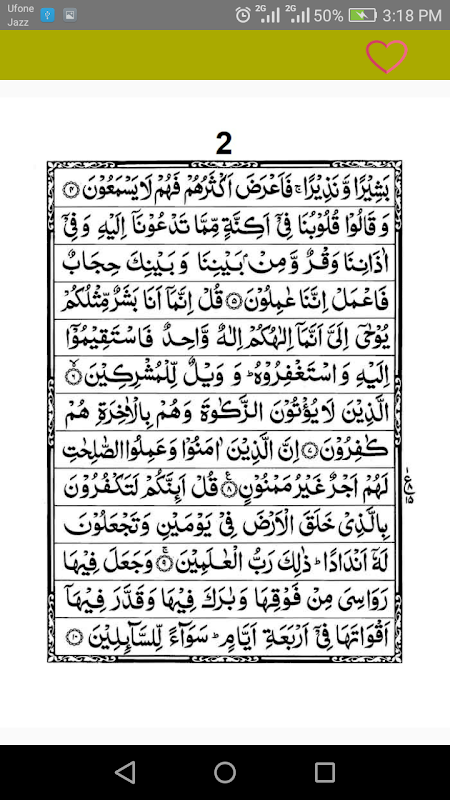 Ufone
Jazz
2G
2G
50%
3:18 PM
2
بَشِيْرًا وَّنَذِيْرًا ۚ فَاَعْرَضَ اَكْثَرُهُمْ فَهُمْ لَا يَسْمَعُوْنَ ﴿۴﴾
وَ قَالُوْا قُلُوْبُنَا فِيْۤ اَكِنَّةٍ مِّمَّا تَدْعُوْنَاۤ اِلَيْهِ وَفِيْۤ
اٰذَانِنَا وَقْرٌ وَّمِنْۢ بَيْنِنَا وَ بَيْنِكَ حِجَابٌ
فَاعْمَلْ اِنَّنَا عٰمِلُوْنَ ﴿۵﴾ قُلْ اِنَّمَاۤ اَنَا بَشَرٌ مِّثْلُكُمْ
يُوْحٰۤى اِلَيَّ اَنَّمَاۤ اِلٰهُكُمْ اِلٰهٌ وَّاحِدٌ فَاسْتَقِيْمُوْۤا
اِلَيْهِ وَاسْتَغْفِرُوْهُ ؕ وَ وَيْلٌ لِّلْمُشْرِكِيْنَ ۙ﴿۶﴾
الَّذِيْنَ لَا يُؤْتُوْنَ الزَّكٰوةَ وَهُمْ بِالْاٰخِرَةِ هُمْ
كٰفِرُوْنَ ﴿۷﴾ اِنَّ الَّذِيْنَ اٰمَنُوْا وَعَمِلُوا الصّٰلِحٰتِ
لَهُمْ اَجْرٌ غَيْرُ مَمْنُوْنٍ ﴿۸﴾ قُلْ اَئِنَّكُمْ لَتَكْفُرُوْنَ
بِالَّذِيْ خَلَقَ الْاَرْضَ فِيْ يَوْمَيْنِ وَتَجْعَلُوْنَ
لَهٗۤ اَنْدَادًا ؕ ذٰلِكَ رَبُّ الْعٰلَمِيْنَ ۚ﴿۹﴾ وَجَعَلَ فِيْهَا
رَوَاسِيَ مِنْ فَوْقِهَا وَبٰرَكَ فِيْهَا وَقَدَّرَ فِيْهَاۤ
اَقْوَاتَهَا فِيْۤ اَرْبَعَةِ اَيَّامٍ ؕ سَوَآءً لِّلسَّآئِلِيْنَ ﴿۱۰﴾